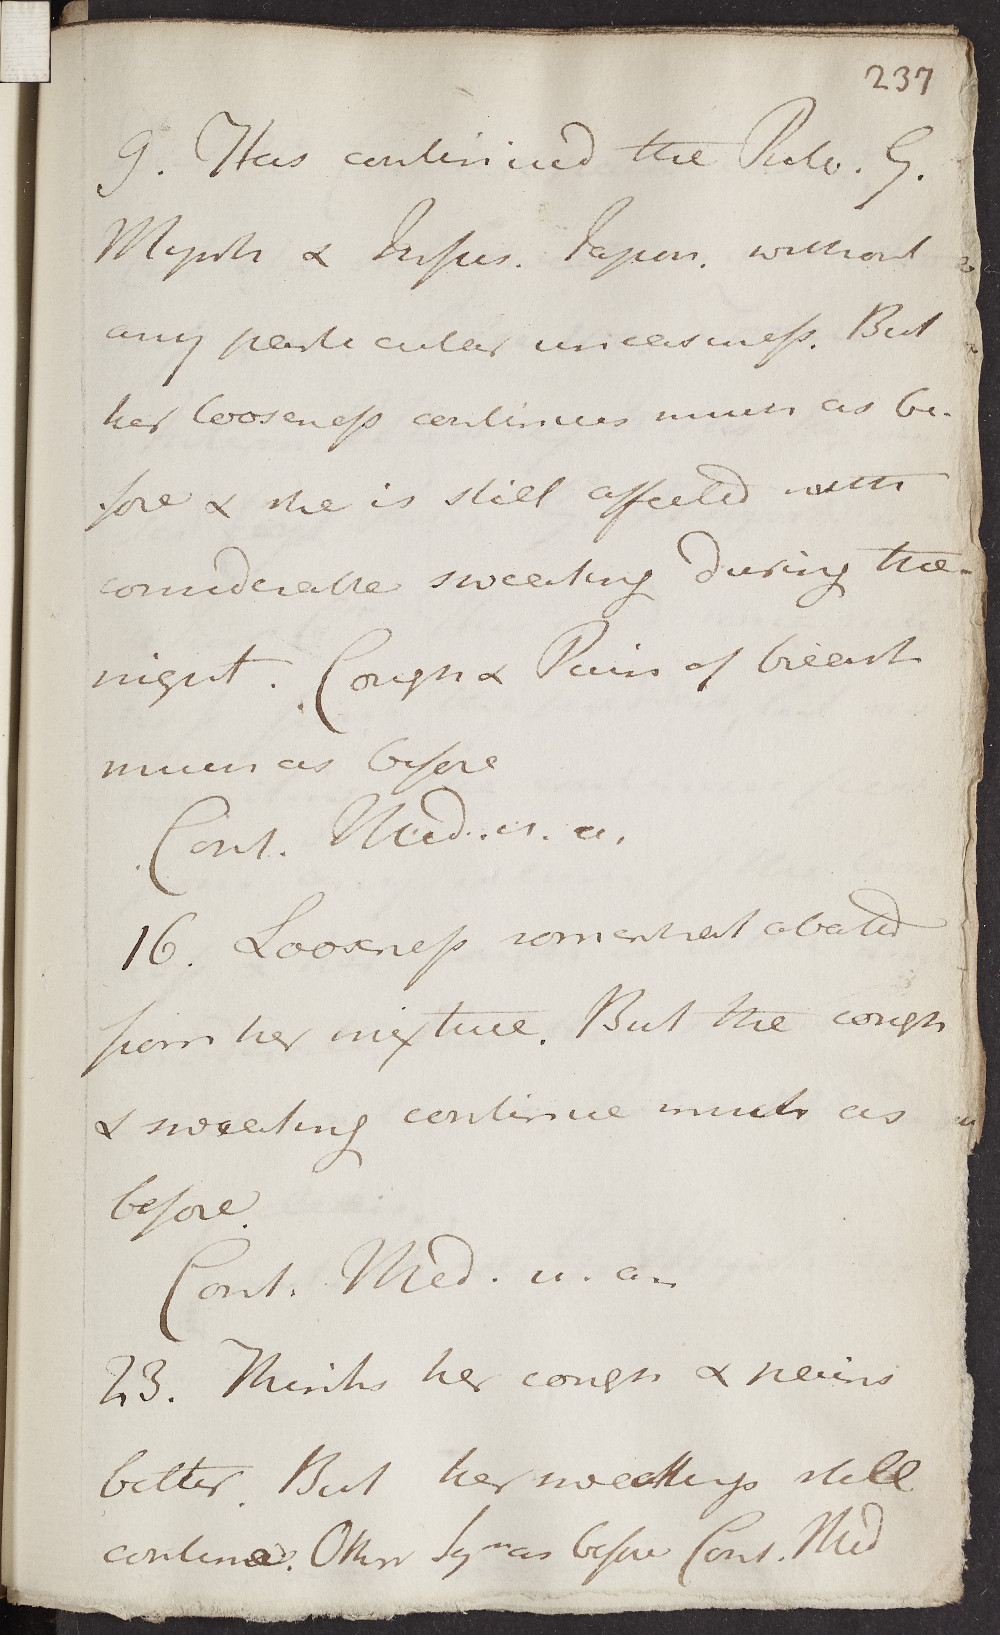 237
9. Has continued the Pulv. G.
Myrrh & Infus. Japon. without
any particular uneasiness. But
her looseness continues much as be-
fore & she is still affected with
considerable sweating during the
night. Cough & Pain of breast
much as before
Cont. Med. u. a.
16. Looseness somewhat abated
from her mixture. But the cough
& sweating continue much as
before.
Cont. Med. u. a.
23. Thinks her cough & pains
better. But her sweatings still
continue. Other Sym as before Cont. Med